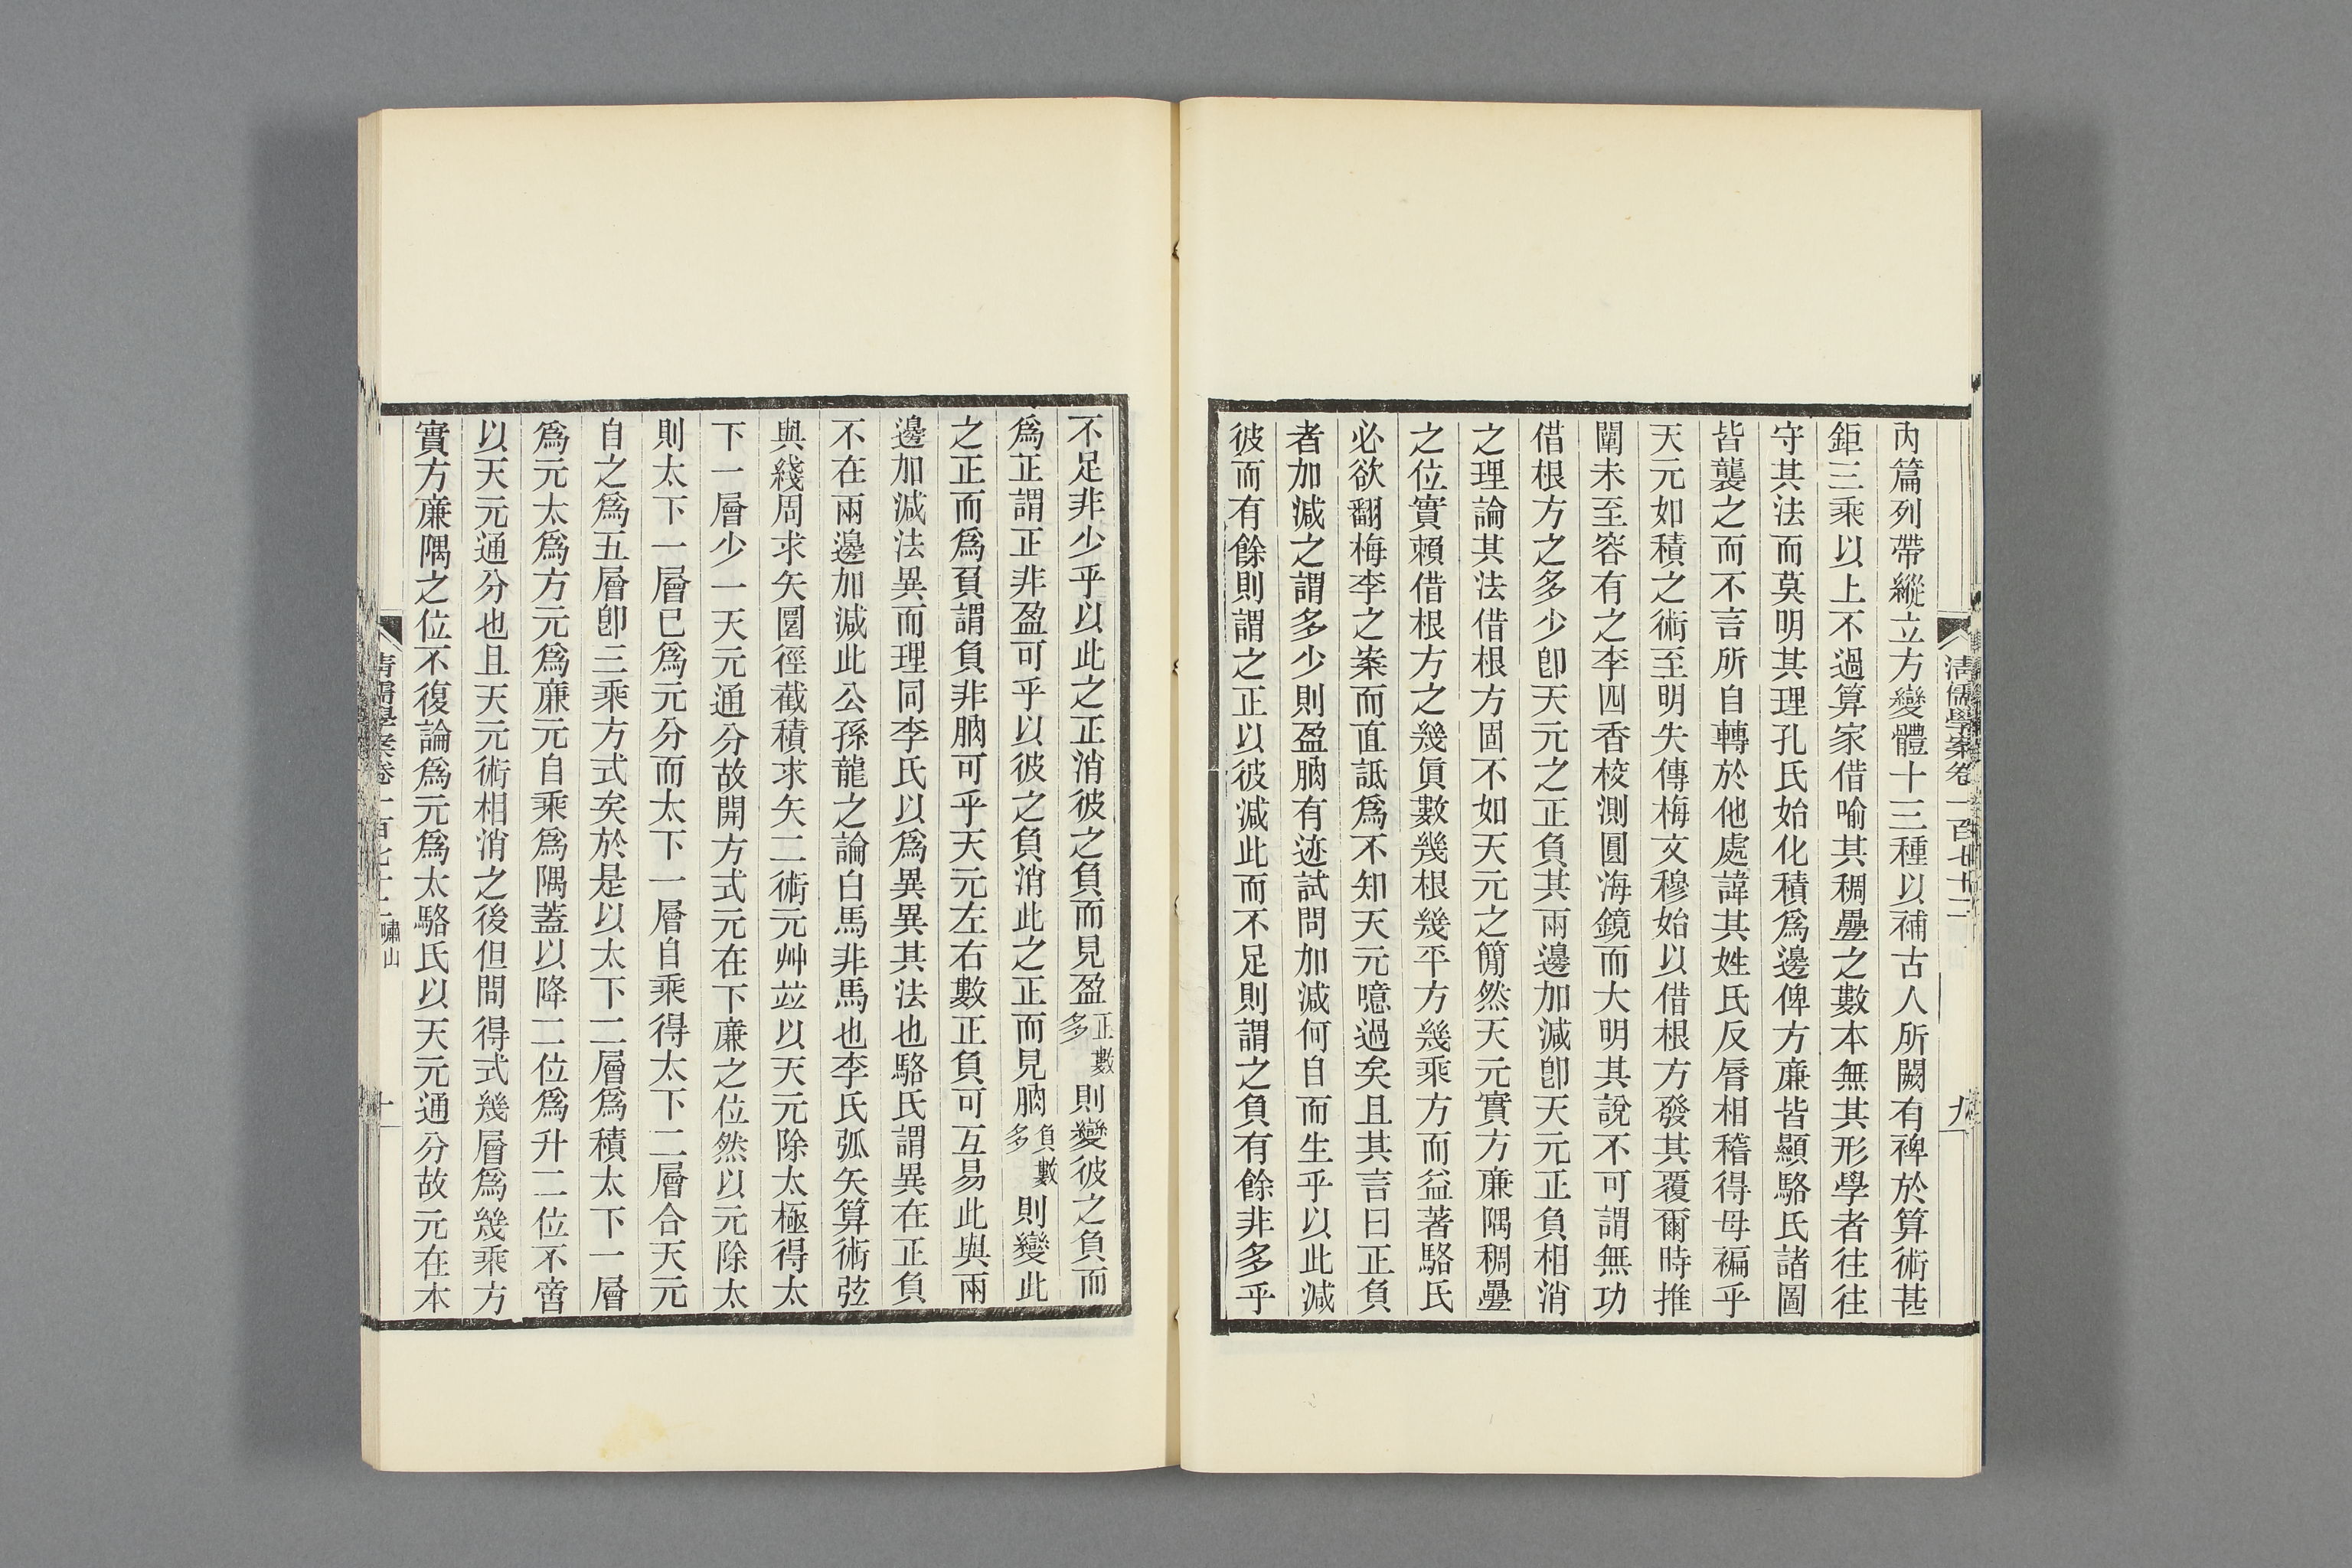 清儒學案卷一百七十二
九
內篇列帶縱立方變體十三種以補古人所闕有裨於算術甚
鉅三乘以上不過算家借喻其稠疊之數本無其形學者往往
守其法而莫明其理孔氏始化積爲邊俾方廉皆顯駱氏諸圖
皆襲之而不言所自轉於他處諱其姓氏反脣相稽得毋褊乎
天元如積之術至明失傳梅文穆始以借根方發其覆爾時推
闡未至容有之李四香校測圓海鏡而大明其說不可謂無功
借根方之多少卽天元之正負其兩邊加減卽天元正負相消
之理論其法借根方固不如天元之簡然天元實方廉隅稠疊
之位實賴借根方之幾眞數幾根幾平方幾乘方而益著駱氏
必欲翻梅李之案而直詆爲不知天元噫過矣且其言曰正負
者加減之謂多少則盈朒有迹試問加減何自而生乎以此減
彼而有餘則謂之正以彼減此而不足則謂之負有餘非多乎
不足非少乎以此之正消彼之負而見盈正數多則變彼之負而
爲正謂正非盈可乎以彼之負消此之正而見朒負數多則變此
之正而爲負謂負非朒可乎天元左右數正負可互易此與兩
邊加減法異而理同李氏以爲異異其法也駱氏謂異在正負
不在兩邊加減此公孫龍之論白馬非馬也李氏弧矢算術弦
與綫周求矢圓徑截積求矢二術元艸竝以天元除太極得太
下一層少一天元通分故開方式元在下廉之位然以元除太
則太下一層已爲元分而太下一層自乘得太下二層合天元
自之爲五層卽三乘方式矣於是以太下二層爲積太下一層
爲元太爲方元爲廉元自乘爲隅蓋以降二位爲升二位不啻
以天元通分也且天元術相消之後但問得式幾層爲幾乘方
實方廉隅之位不復論爲元爲太駱氏以天元通分故元在本
清儒學案卷一百七十二 嘯山
十